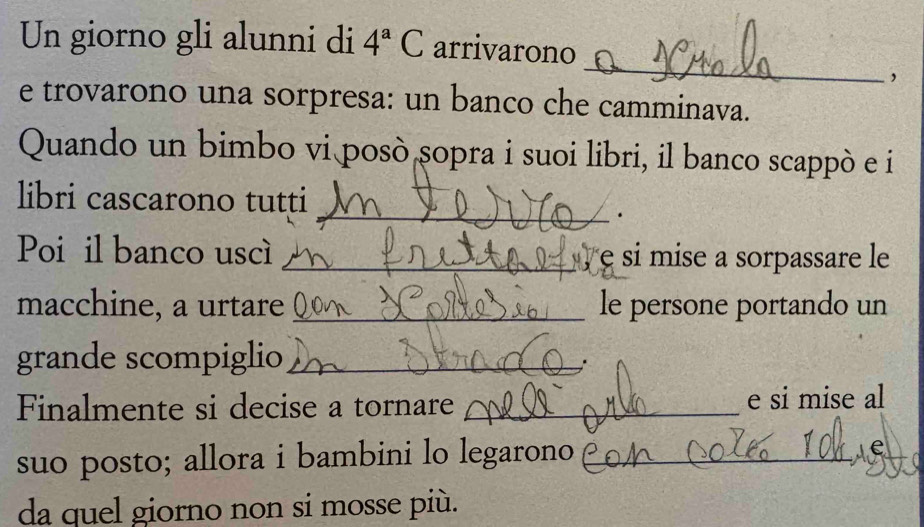 Un giorno gli alunni di 4ª C arrivarono a scuola,
e trovarono una sorpresa: un banco che camminava.
Quando un bimbo vi posò sopra i suoi libri, il banco scappò e i
libri cascarono tutti in terra.
Poi il banco uscì in fretta e si mise a sorpassare le
macchine, a urtare con le persone portando un
grande scompiglio in strada.
Finalmente si decise a tornare e si mise al
suo posto; allora i bambini lo legarono con e
da quel giorno non si mosse più.